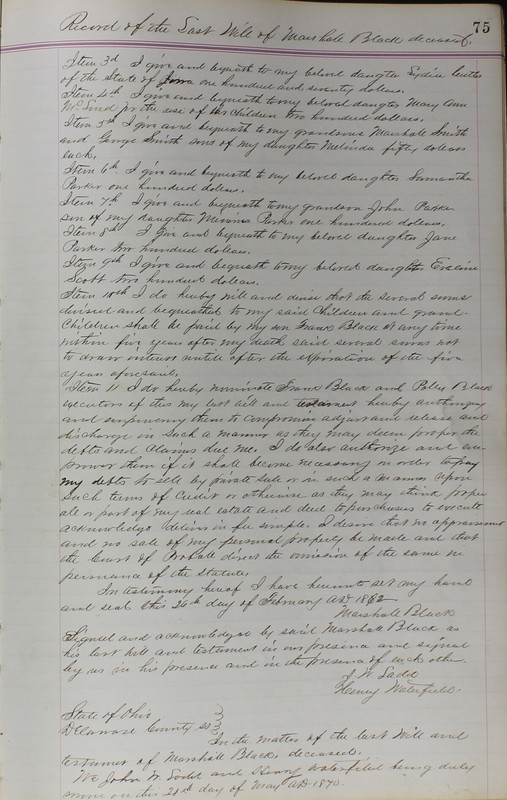 75
Record of the Last Will of Marshall Black deceased.
Item 3d I give and bequeath to my beloved daughter Lydia
of the State of Iowa one hundred and seventy dollars.
Item 4th I give and bequeath to my beloved daughter Mary Ann
for the use of her Children two hundred dollars.
Item 5th I give and bequeath to my grandsons Marshall Smith
and George Smith sons of my daughter Melinda fifty dollars
each.
Item 6th I give and bequeath to my beloved daughter Samantha
Parker one hundred dollars.
Item 7th I give and bequeath to my grandson John Parker
son of my daughter Parker one hundred dollars.
Item 8th I give and bequeath to my beloved daughter Jane
Parker two hundred dollars.
Item 9th I give and bequeath to my beloved daughter
Scott two hundred dollars.
Item 10th I do hereby will and devise that the several sums
devised and bequeathed to my said Children and grand-
Children shall be paid by my son Frank Black at any time
within five years after my death said several sums not
to draw interest untill after the expiration of the five
years aforesaid.
Item 11 I do hereby nominate Frank Black and Black
executors of this my last will and testament hereby authorizing
and empowering them to compromise adjust and release and
discharge in such a manner as they may deem proper the
debts and claims due me. I do also authorize and em
power them if it shall become necessary in order to pay
my debts to sell by private sale or in such a manner upon
such terms of credit or otherwise as they may think proper
all or part of my real estate and deed to purchasers to execute
acknowledge deliver in fee simple. I desire that no appraisement
and no sale of my personal property be made and that
the Court of Probate direct the omission of the same in
pursuance of the Statute.
In testimony hereof I have hereunto set my hand
and seal this 26th day of February AD 1862
Marshall Black
Signed and acknowledged by said Marshall Black as
his last will and testament in our presence and signed
by us in his presence and in the presence of each other.
J. W. Ladd
Henry Waterfield.
State of Ohio
Delaware County ss
In the matter of the last Will and
testament of Marshall Black, deceased.
We John W. Ladd and Henry Waterfield being duly
sworn on this day of May AD 1870.